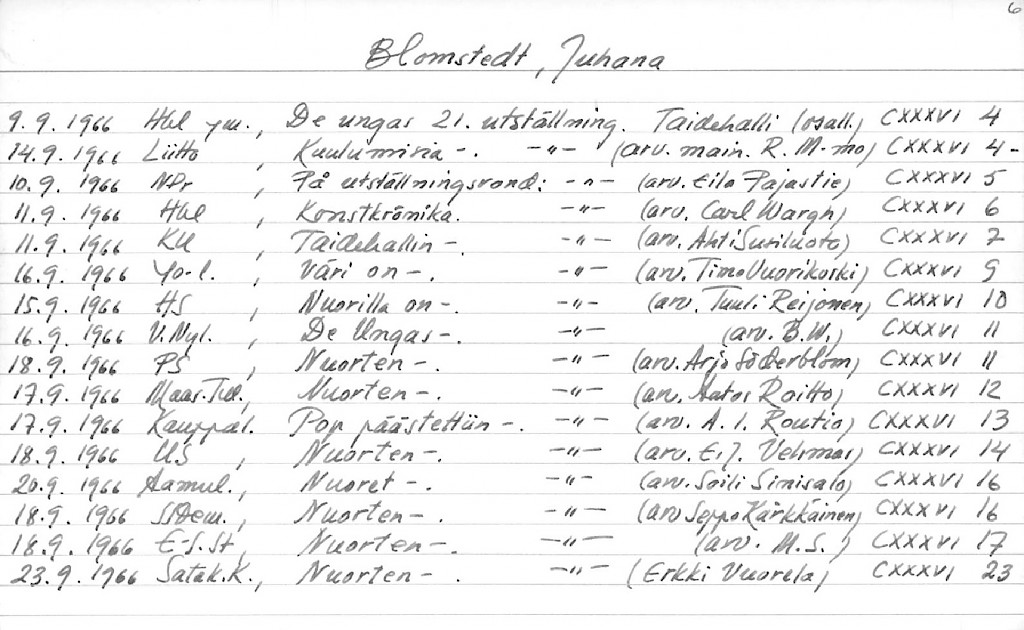 6
Blomstedt, Juhana
9.9.1966 Hbl ym., De ungas 21. utställning. Taidehalli (osall.) CXXXVI 4
14.9.1966 Liitto, Kuulumisia -. -"- (arv. main. R. M-mo) CXXXVI 4-
10.9.1966 NPr, På utställningsrond: -"- (arv. Eila Pajastie) CXXXVI 5
11.9.1966 Hbl, Konstkrönika. -"- (arv. Carl Wargh) CXXXVI 6
11.9.1966 KU, Taidehallin -. -"- (arv. Ahti Susiluoto) CXXXVI 7
16.9.1966 Yo-l., Väri on -. -"- (arv. Timo Vuorikoski) CXXXVI 9
15.9.1966 HS, Nuorilla on -. -"- (arv. Tuuli Reijonen) CXXXVI 10
16.9.1966 V.Nyl., De Ungas -. -"- (arv. B.W.) CXXXVI 11
18.9.1966 PS, Nuorten -. -"- (arv. Arjo Söderblom) CXXXVI 11
17.9.1966 Maas. Tul., Nuorten -. -"- (arv. Aator Roitto) CXXXVI 12
17.9.1966 Kauppal. Pop päästettiin -. -"- (arv. A. I. Routio) CXXXVI 13
18.9.1966 US, Nuorten -. -"- (arv. E.J. Vehmas) CXXXVI 14
20.9.1966 Aamul., Nuoret -. -"- (arv. Soili Sinisalo) CXXXVI 16
18.9.1966 SSDem., Nuorten -. -"- (arv Seppo Kärkkäinen) CXXXVI 16
18.9.1966 E-S.St, Nuorten -. -"- (arv. M.S.) CXXXVI 17
23.9.1966 Satak.K., Nuorten - . -"- (Erkki Vuorela) CXXXVI 23